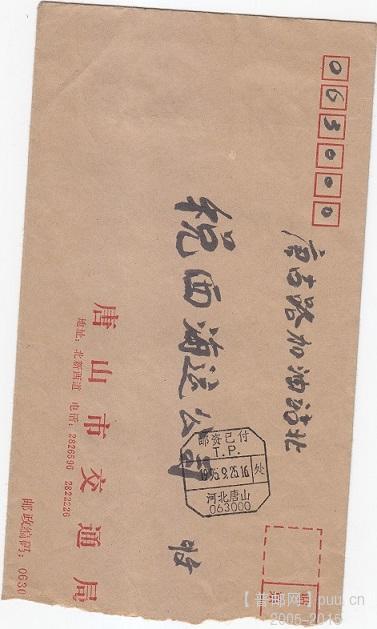 063000
唐古路加油站北
税西海运公司 收
邮资已付
T.P.
1995.8.25.16
处
河北唐山
063000
贴
唐山市交通局
地址：北新西道 电话：2826596 2822226
邮政编码：0630
【普邮网】puu.cn
2005-2015